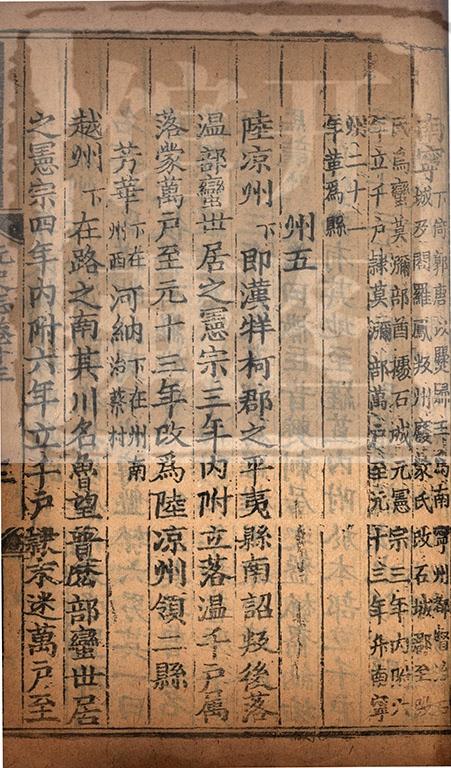 南寧 下倚郭唐以爨歸王爲南寧州都督治石
城及閣羅鳳叛州廢蒙氏改石城郡至段
氏烏蠻莫彌部酋據石城元憲宗三年內附六
年立千戶隸莫彌部萬戶至元十三年升南寧
州二十一
年革爲縣
州五
陸凉州 下 即漢牂柯郡之平夷縣南詔叛後落
温部蠻世居之憲宗三年內附立落温千戶屬
落蒙萬戶至元十三年改爲陸凉州領二縣
芳華 下在州西 河納 下在州南治蔡村
越州 下 在路之南其川名魯望普麽部蠻世居
之憲宗四年內附六年立千戶隸末迷萬戶至